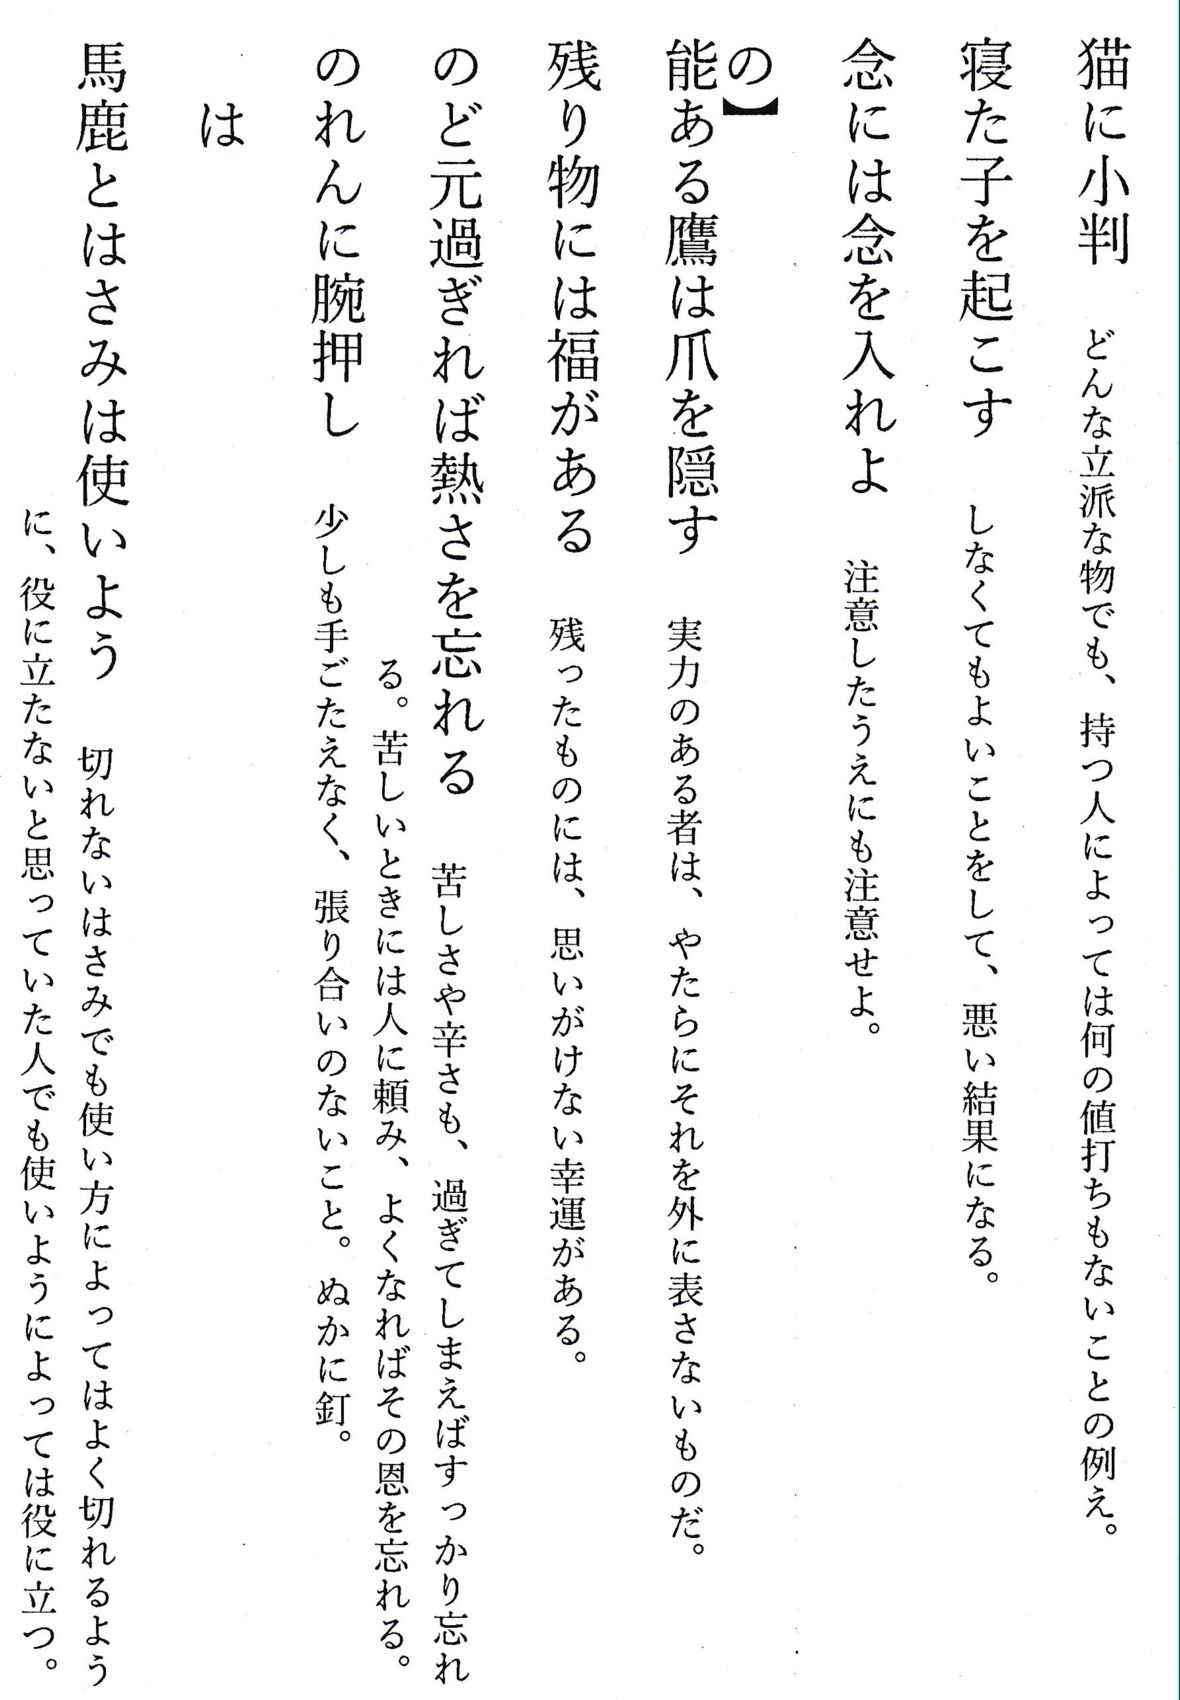 猫に小判　どんな立派な物でも、持つ人によっては何の値打ちもないことの例え。
寝た子を起こす　しなくてもよいことをして、悪い結果になる。
念には念を入れよ　注意したうえにも注意せよ。
の】
能ある鷹は爪を隠す　実力のある者は、やたらにそれを外に表さないものだ。
残り物には福がある　残ったものには、思いがけない幸運がある。
のど元過ぎれば熱さを忘れる　苦しさや辛さも、過ぎてしまえばすっかり忘れ
る。苦しいときには人に頼み、よくなればその恩を忘れる。
のれんに腕押し　少しも手ごたえなく、張り合いのないこと。ぬかに釘。
は
馬鹿とはさみは使いよう　切れないはさみでも使い方によってはよく切れるよう
に、役に立たないと思っていた人でも使いようによっては役に立つ。